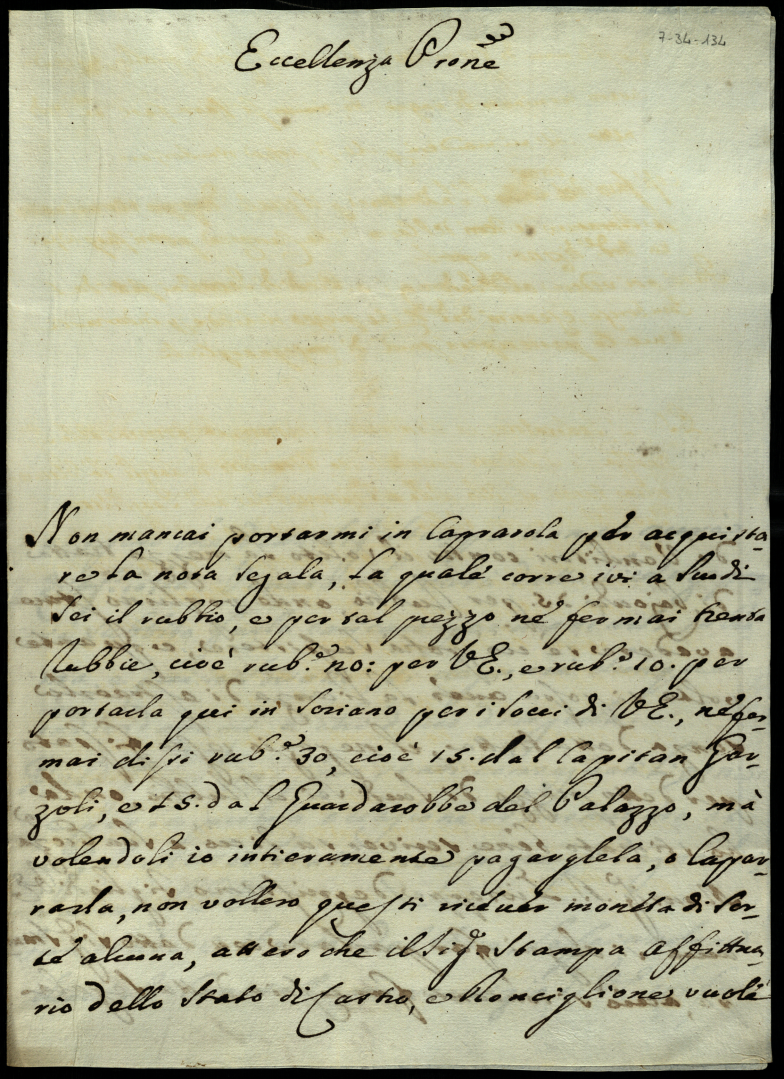 7-34-134
Eccellenza Prone
Non mancai portarmi in Caprarola per acquista-
re la nota Segala, la quale corre ivi a Scudi
Sei il rubbio, e per tal prezzo ne fermai trenta
Rubbie, cioè rub.ª 20: per VE., e rub.ª 10. per
portarla qui in Soriano per i Socci di VE., ne fer-
mai dissi rub.ª 30, cioè 15. dal Capitan Gar-
zoli, e 15. dal Guardarobbe del Palazzo, mà
volendoli io intieramente pagargliela, o Capar-
rarla, non vollero questi ricever moneta di Sor-
te alcuna, atteso che il Sig. Stampa Affittua-
rio dello Stato di Castro, e Ronciglione vuole